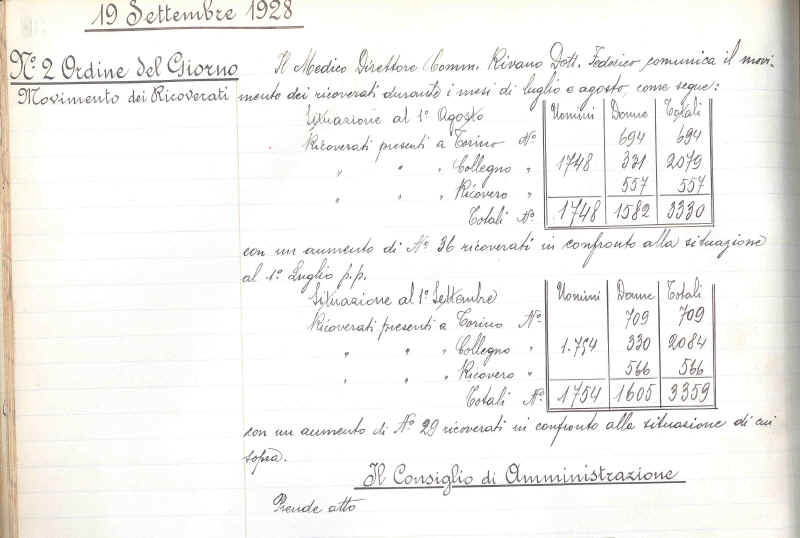 19 Settembre 1928
Nº 2 Ordine del Giorno
Movimento dei Ricoverati
Il Medico Direttore Comm. Rivano Dott. Federico comunica il movi-
mento dei ricoverati durante i mesi di luglio e agosto, come segue:
Situazione al 1º Agosto Uomini Donne Totali
Ricoverati presenti a Torino Nº 694 694
" " " Collegno " 1748 331 2079
" " " Ricovero " 557 557
Totali Nº 1748 1582 3330
con un aumento di Nº 36 ricoverati in confronto alla situazione
al 1º Luglio p.p.
Situazione al 1º Settembre Uomini Donne Totali
Ricoverati presenti a Torino Nº 709 709
" " " Collegno " 1.754 330 2084
" " " Ricovero " 566 566
Totali Nº 1754 1605 3359
con un aumento di Nº 29 ricoverati in confronto alla situazione di cui
sopra.
Il Consiglio di Amministrazione
Prende atto